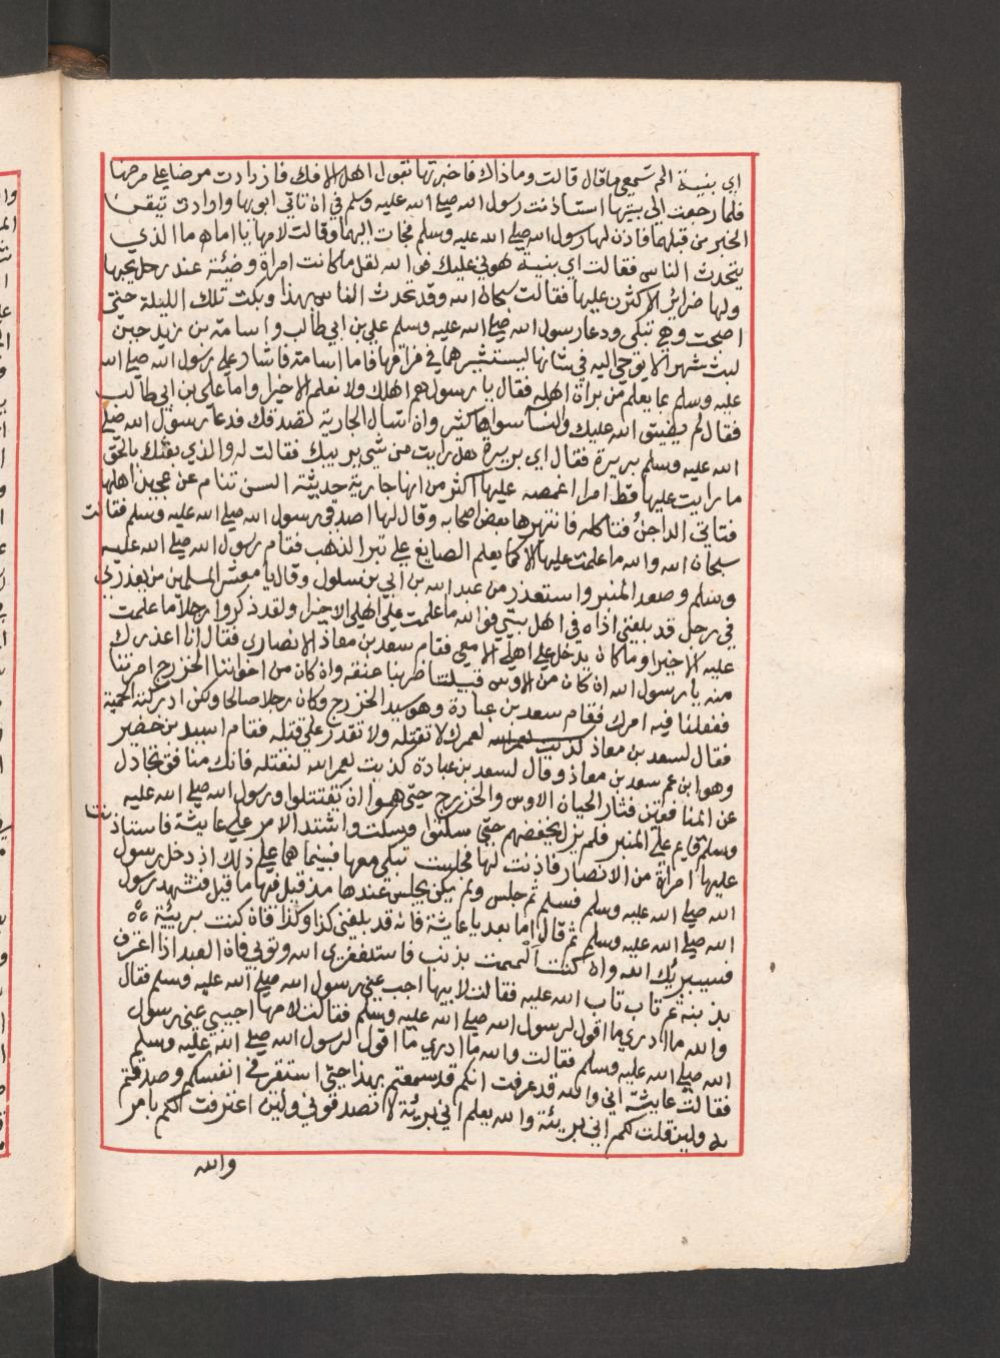 اي بنية الم تسمعي ما قال قالت وما ذاك فاخبرتها بقول اهل الافك فازدادت مرضا على مرضها
فلما رجعت الى بيتها استاذنت رسول الله صلى الله عليه وسلم في ان تاتي ابويها وارادت تيقن
الخبر من قبلهما فاذن لها رسول الله صلى الله عليه وسلم فجات اليهما وقالت لامها يا اماه ما الذي
يتحدث الناس فقالت اي بنية هوني عليك فوالله لقل ما كانت امراة وضيئة عند رجل يحبها
ولها ضراير الا كثرن عليها فقالت سبحان الله وقد تحدث الناس بهذا وبكت تلك الليلة حتى
اصبحت وهي تبكي ودعا رسول الله صلى الله عليه وسلم علي بن ابي طالب واسامة بن زيد حين
لبث شهرا لا يوحى اليه في شانها ليستشيرهما في فراقها فاما اسامة فاشار على رسول الله صلى الله
عليه وسلم بما يعلم من براة اهله فقال يا رسول هم اهلك ولا نعلم الا خيرا واما علي بن ابي طالب
فقال لم يضيق الله عليك والنسا سواها كثير وان تسال الجارية تصدقك فدعا رسول الله صلى
الله عليه وسلم بريرة فقال اي بريرة هل رايت من شي يريبك فقالت له والذي بعثك بالحق
ما رايت عليها قط امرا اغمصه عليها اكثر من انها جارية حديثة السن تنام عن عجين اهلها
فتاتي الداجن فتاكله فانتهرها بعض اصحابه وقال لها اصدقي رسول الله صلى الله عليه وسلم فقالت
سبحان الله والله ما علمت عليها الا كما يعلم الصايغ على تبر الذهب فقام رسول الله صلى الله عليه
وسلم وصعد المنبر واستعذر من عبد الله بن ابي بن سلول وقال يا معشر المسلمين من يعذرني
في رجل قد بلغني اذاه في اهل بيتي فوالله ما علمت على اهلي الا خيرا ولقد ذكروا رجلا ما علمت
عليه الا خيرا وما كان يدخل على اهلي الا معي فقام سعد بن معاذ الانصاري فقال انا اعذرك
منه يا رسول الله ان كان من الاوس قبيلتنا ضربنا عنقه وان كان من اخواننا الخزرج امرتنا
ففعلنا فيه امرك فقام سعد بن عبادة وهو سيد الخزرج وكان رجلا صالحا ولكن ادركته الحمية
فقال لسعد بن معاذ كذبت لعمر الله لعمرك لا تقتله ولا تقدر على قتله فقام اسيد بن حضير
وهو ابن عم سعد بن معاذ وقال لسعد بن عبادة كذبت لعمر الله لنقتله فانك منافق تجادل
عن المنافقين فثار الحيان الاوس والخزرج حتى هموا ان يقتتلوا ورسول الله صلى الله عليه
وسلم قايم على المنبر فلم يزل يخفضهم حتى سكتوا وسكت واشتد الامر على عايشة فاستاذنت
عليها امراة من الانصار فاذنت لها فجلست تبكي معها فبينما هما على ذلك اذ دخل رسول
الله صلى الله عليه وسلم فسلم ثم جلس ولم يكن يجلس عندها منذ قيل فيها ما قيل فتشهد رسول
الله صلى الله عليه وسلم ثم قال اما بعد يا عايشة فانه قد بلغني كذا وكذا فان كنت بريئة
فسيبريك الله وان كنت الممت بذنب فاستغفري الله وتوبي فان العبد اذا اعترف
بذنبه ثم تاب تاب الله عليه فقالت لابيها اجب عني رسول الله صلى الله عليه وسلم فقال
والله ما ادري ما اقول لرسول الله صلى الله عليه وسلم فقالت لامها اجيبي عني رسول
الله صلى الله عليه وسلم فقالت والله ما ادري ما اقول لرسول الله صلى الله عليه وسلم
فقالت عايشة اني والله قد عرفت انكم قد سمعتم بهذا حتى استقر في انفسكم وصدقتم
به ولين قلت لكم اني بريئة والله يعلم اني بريئة لا تصدقوني ولين اعترفت لكم بامر
والله